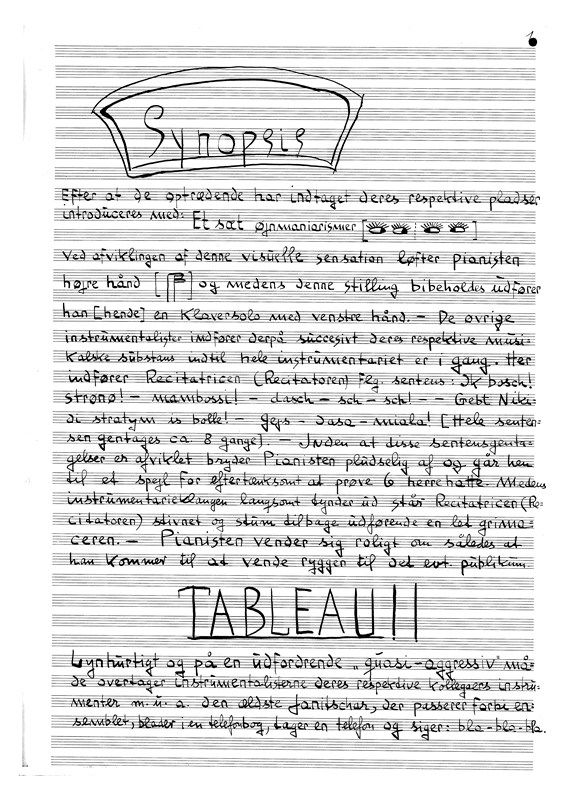 1
Synopsis
Efter at de optrædende har indtaget deres respektive pladser
introduceres med: Et sæt øjnmaniarismer [ ]
Ved afviklingen af denne visuelle sensation løfter pianisten
højre hånd [ ] og medens denne stilling bibeholdes udfører
han [hende] en klaversolo med venstre hånd. – De øvrige
instrumentalister indfører derpå succesivt deres respektive musi=
kalske substans indtil hele instrumentariet er i gang. Her
indfører Recitatricen (Recitatoren) Flg. sentens: Ik bosch!
strønø! – mambossi! – dasch – sch – sch! – – Gebt Niki=
di stratym is bolle! – Gejs – dasa – miala! [Hele senten=
sen gentages ca 8 gange]. – Inden at disse sentensgenta=
gelser er afviklet bryder Pianisten pludselig af og går hen
til et spejl for eftertænksomt at prøve 6 herrehatte. Medens
instrumentarieklangen langsomt tynder ud står Recitatricen (Re=
citatoren) stivnet og stum tilbage udførende en let grima=
ceren. – Pianisten vender sig roligt om således at
han kommer til at vende ryggen til det evt. publikum
TABLEAU!!
Lynhurtigt og på en udfordrende „quasi-aggressiv" må=
de overtager instrumentalisterne deres respektive kollegaers instru=
menter m.u.a. den ældste janitschar, der passerer forbi en=
semblet, blader i en telefonbog, tager en telefon og siger: bla-bla-bla.